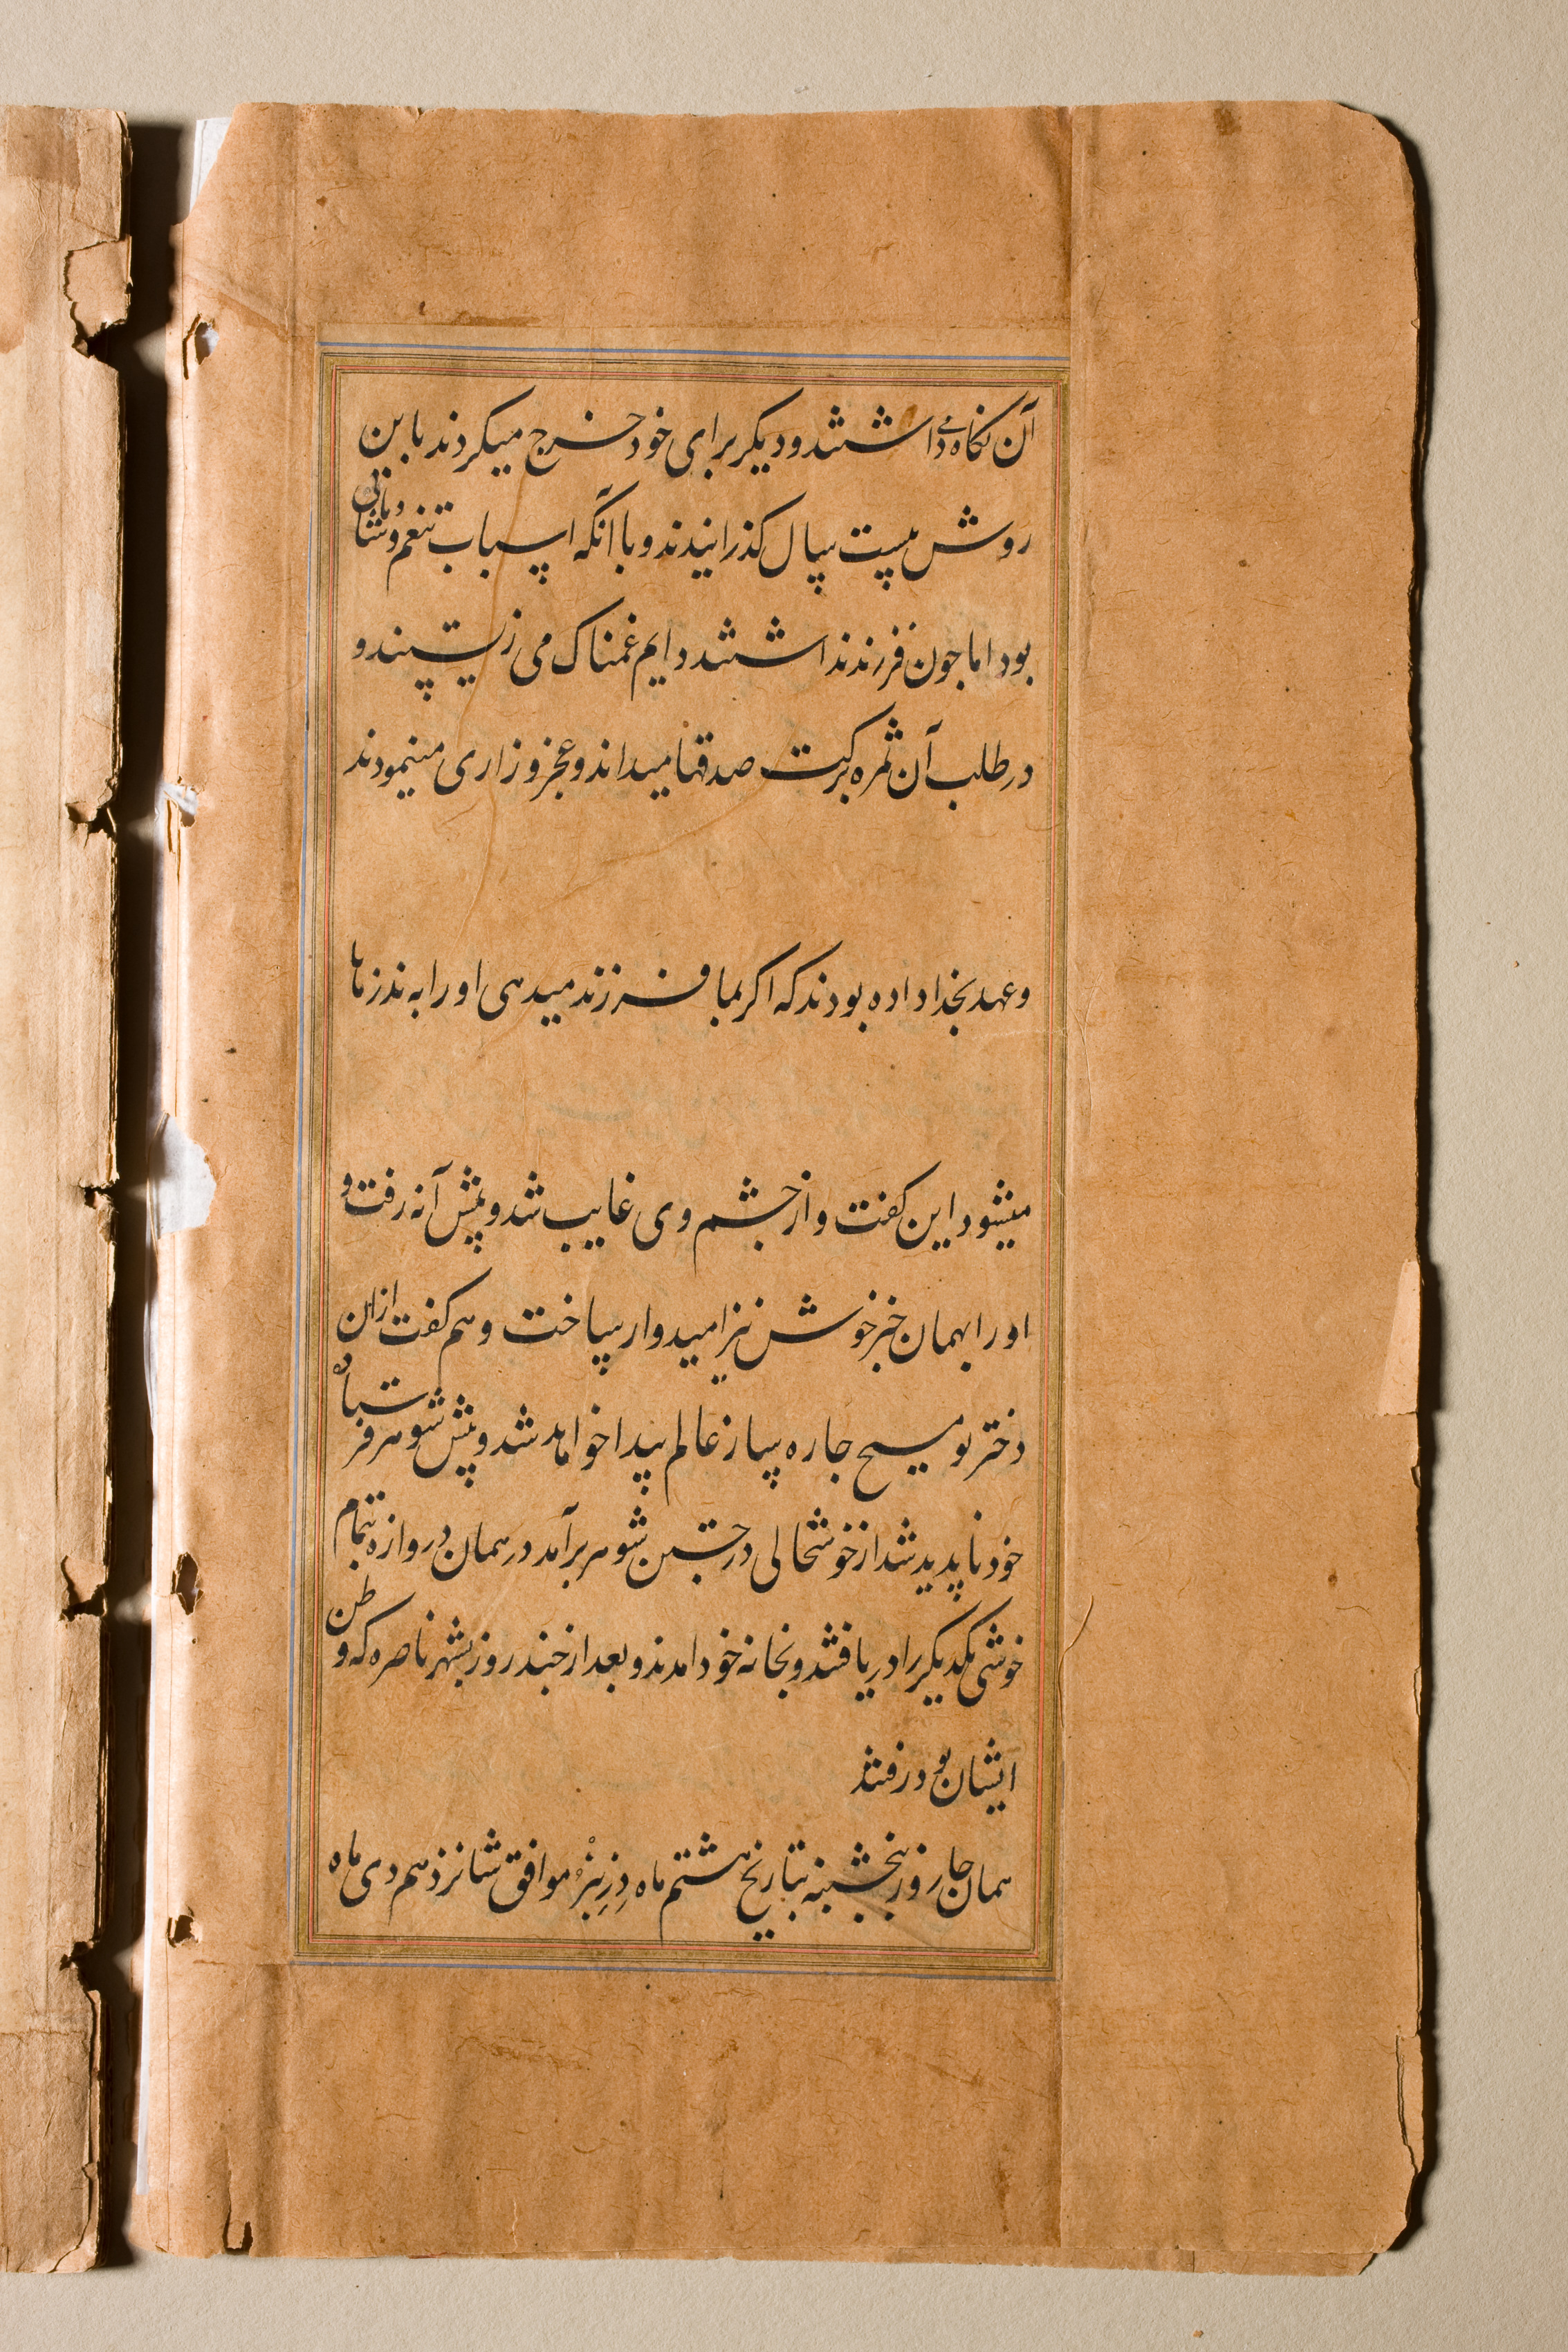 آن نکاه می داشتند و دیکر برای خود خرج میکردند باین
روش بیست سال کذرانیدند و با آنکه اسباب تنعم و شادمانی
بود اما جون فرزند نداشتند دایم غمناک می زیستند و
در طلب آن ثمره برکت صدقها میدادند و عجز و زاری مینمودند
و عهد بخدا داده بودند که اکر بما فرزند میدهی او را به نذر ما
میشود این کفت و از جشم وی غایب شد و پیش آنه رفت و
او را بهمان خبر خوش نیز امیدوار ساخت و هم کفت از ان
دختر تو مسیح جاره ساز عالم پیدا خواهد شد و پیش شوهر فرستاده
خود ناپدید شد از خوشحالی در جستن شوهر برآمد در همان دروازه بتمام
خوشی یکدیکر را دریافتند و بخانه خود امدند و بعد از جند روز بشهر ناصره که وطن
ایشان بود رفتند
همان جا روز پنجشنبه بتاریخ هشتم ماه دزنبر موافق شانزدهم دی ماه